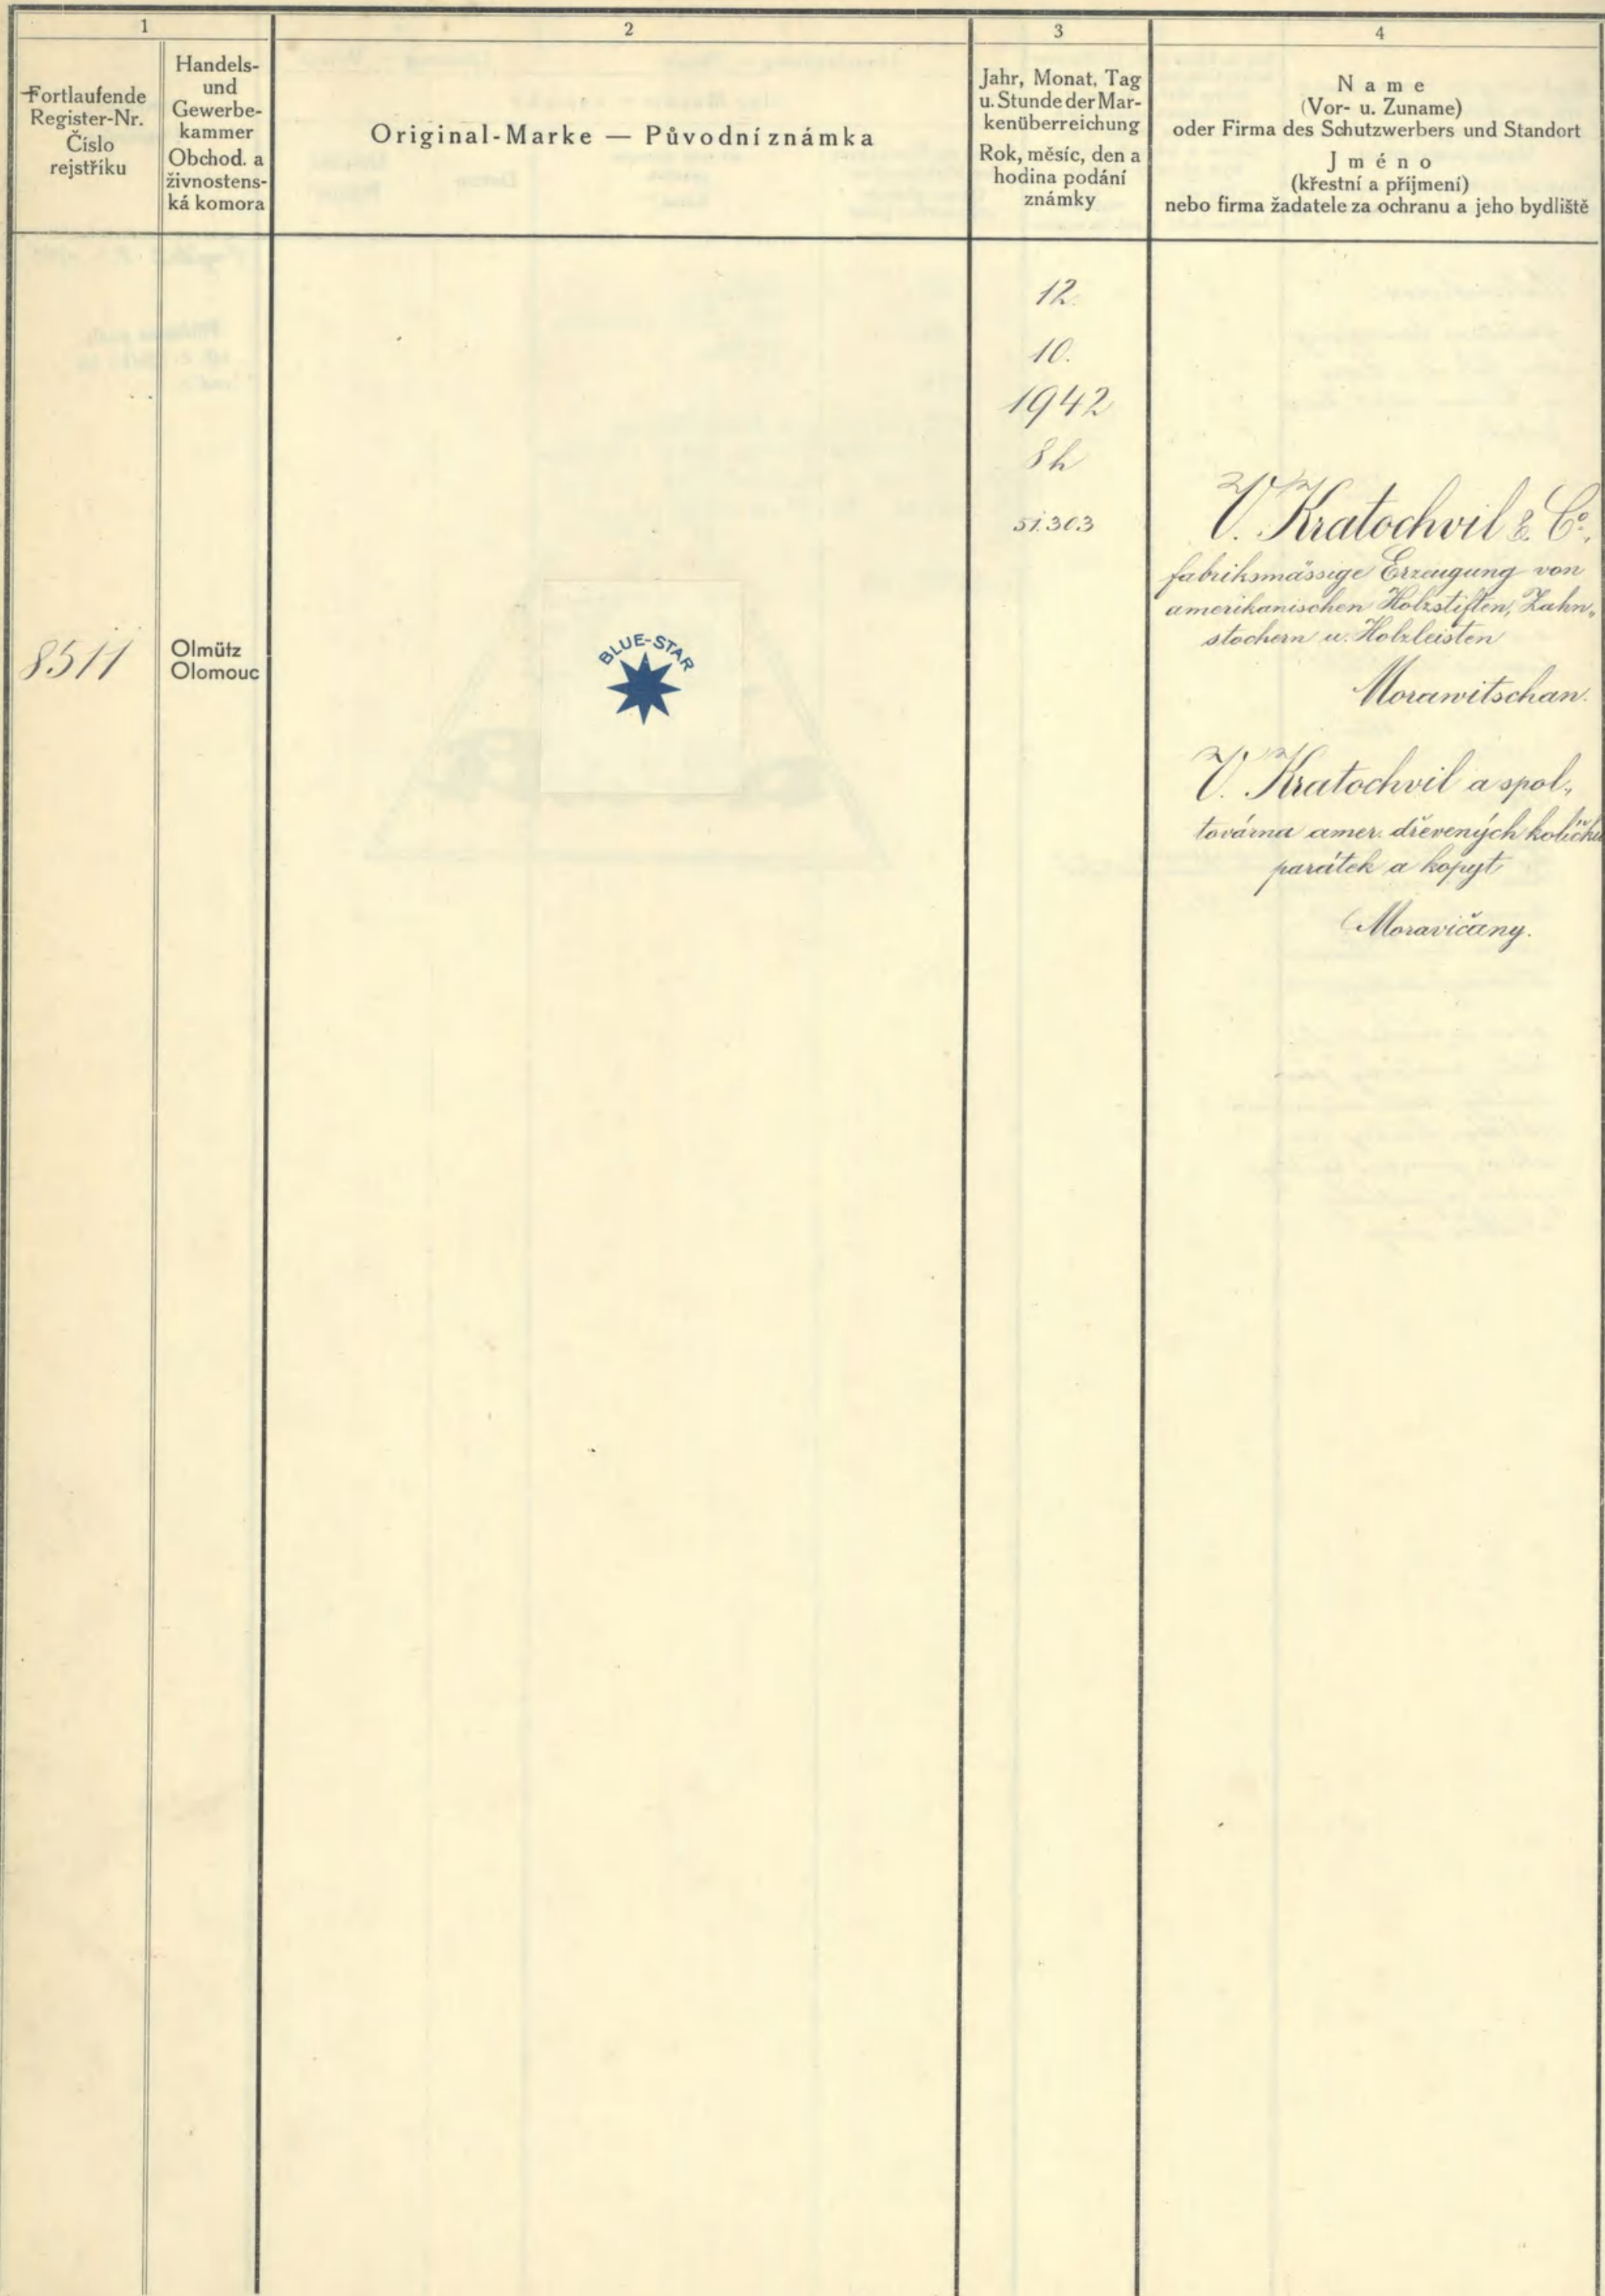 1
2
3
4
Fortlaufende
Register-Nr.
Číslo
rejstříku
Handels-
und
Gewerbe-
kammer
Obchod. a
živnostens-
ká komora
Original-Marke — Původní známka
Jahr, Monat, Tag
u. Stunde der Mar-
kenüberreichung
Rok, měsíc, den a
hodina podání
známky
Name
(Vor- u. Zuname)
oder Firma des Schutzwerbers und Standort
Jméno
(křestní a příjmení)
nebo firma žadatele za ochranu a jeho bydliště
8511
Olmütz
Olomouc
BLUE-STAR
12.
10.
1942
8h
51.303
V. Kratochvil & Co.,
fabriksmässige Erzeugung von
amerikanischen Holzstiften, Zahn-
stochern u. Holzleisten
Morawitschan.
V. Kratochvil a spol.,
továrna amer. dřevených kolíčků
parátek a kopyt
Moravičany.